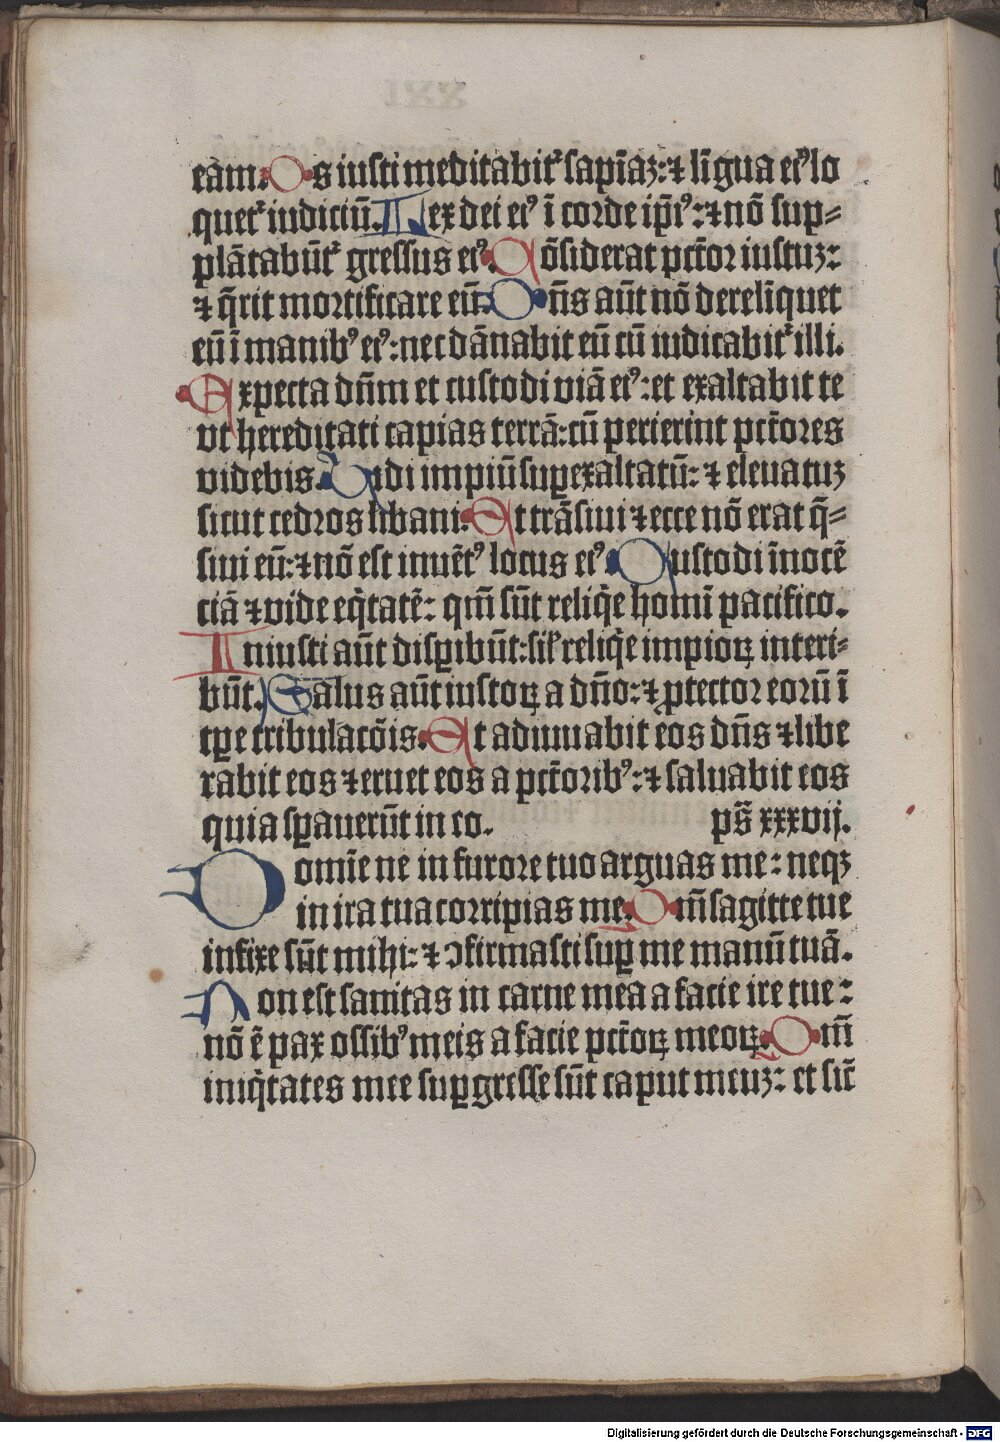 eam. Os iusti meditabit᷑ sapīaꝫ: ⁊ līgua eiꝰ lo
quet᷑ iudiciū. Lex dei eiꝰ ī corde ip̄iꝰ: ⁊ nō sup-
plātabūt᷑ gressus eiꝰ. Cōsiderat pctōr iustuꝫ:
⁊ q̄rit mortificare eū. Dn̄s aūt nō derelīquet
eū ī manibꝰ eiꝰ: nec dānabit eū cū iudicabit᷑ illi.
Expecta dn̄m et custodi viā eiꝰ: et exaltabit te
vt hereditati capias terrā: cū perierint pctōres
videbis. Vidi impiū suꝑexaltatū: ⁊ eleuatuꝫ
sicut cedros libani. Et trāsiui ⁊ ecce nō erat q̄-
siui eū: ⁊ nō est inuētꝰ locus eiꝰ. Custodi īnocē
ciā ⁊ vide eq̄tatē: qm̄ sūt reliq̄e homī pacifico.
Iniusti aūt disꝑibūt: sil̄ reliq̄e impioꝝ interi-
būt. Salus aūt iustoꝝ a dn̄o: ⁊ ꝓtector eorū ī
tꝑe tribulacōis. Et adiuuabit eos dn̄s ⁊ libe
rabit eos ⁊ eruet eos a pctōribꝰ: ⁊ saluabit eos
quia sꝑauerūt in eo. ps̄ xxxvij.
Domīe ne in furore tuo arguas me: neqꝫ
in ira tua corripias me. Om̄ sagitte tue
infixe sūt mihi: ⁊ ꝯfirmasti suꝑ me manū tuā.
Non est sanitas in carne mea a facie ire tue:
nō ē pax ossibꝰ meis a facie pctōꝝ meoꝝ. Om̄
iniq̄tates mee suꝑgresse sūt caput meuꝫ: et sic̄
Digitalisierung gefördert durch die Deutsche Forschungsgemeinschaft - DFG